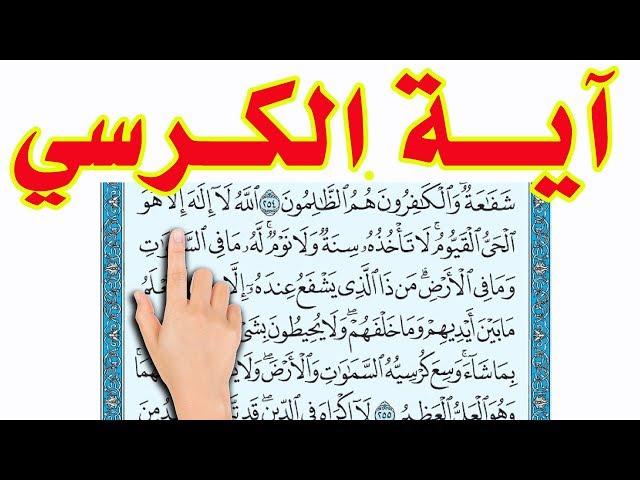 آية الكرسي
شَفَٰعَةٌ وَٱلْكَٰفِرُونَ هُمُ ٱلظَّٰلِمُونَ ٢٥٤ ٱللَّهُ لَآ إِلَٰهَ إِلَّا هُوَ
ٱلْحَىُّ ٱلْقَيُّومُ ۚ لَا تَأْخُذُهُۥ سِنَةٌ وَلَا نَوْمٌ ۚ لَّهُۥ مَا فِى
وَمَا فِى ٱلْأَرْضِ ۗ مَن ذَا ٱلَّذِى يَشْفَعُ عِندَهُۥٓ إِلَّا
مَا بَيْنَ أَيْدِيهِمْ وَمَا خَلْفَهُمْ ۖ وَلَا يُحِيطُونَ
بِمَا شَآءَ ۚ وَسِعَ كُرْسِيُّهُ ٱلسَّمَٰوَٰتِ وَٱلْأَرْضَ ۖ
وَهُوَ ٱلْعَلِىُّ ٱلْعَظِيمُ ٢٥٥ لَآ إِكْرَاهَ فِى ٱلدِّينِ ۖ قَد